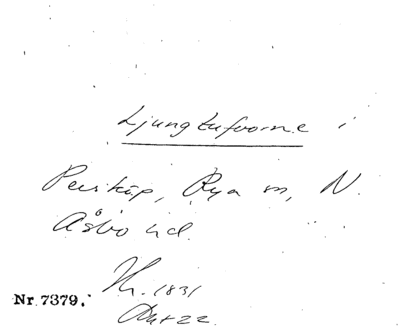 Ljungtufvorne i
Perstorp, Rya m, N.
Åsbo hd.
Nr. 7379.
1831